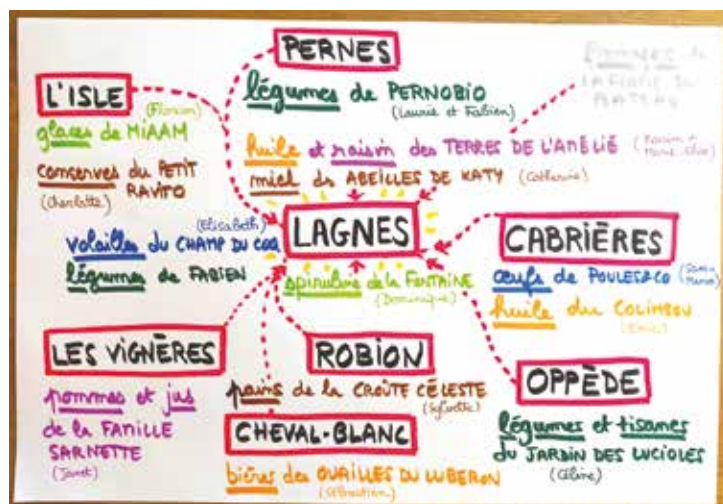 PERNES
légumes de PERNOBIO
(Laurie et Fabien)
L'ISLE
(Florian)
glaces de MiAAM
conserves du PETIT
RAVITO
(Charlotte)
huile et raisin des TERRES DE L'AMÉLIE
miel des ABEILLES DE KATY (Catherine)
(Elisabeth)
volailles du CHAMP DU COQ
légumes de FABIEN
LAGNES
spiruline de la FONTAINE
(Dominique)
CABRIÈRES
œufs de POULE&CO
huile du COLiNSOU
LES ViGNÈRES
pommes et jus
de la FAMILLE
SARNETTE
(Janet)
ROBION
pains de la CROÛTE CÉLESTE
(Sylvette)
CHEVAL-BLANC
bières des OUAILLES DU LUBERON
(Sébastien)
OPPÈDE
légumes et tisanes
du JARDIN DES LUCIOLES
(Céline)